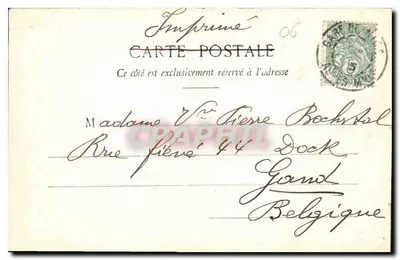 Imprimé
06
CARTE POSTALE
Ce côté est exclusivement réservé à l'adresse
Madame Vve Pierre Bockstal
Rue fiévé 44 Dock
Gand
Belgique
CPAPHIL